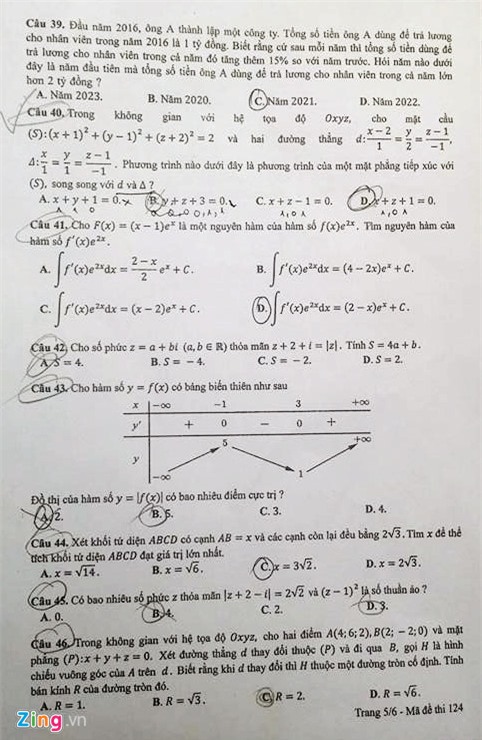 Câu 39. Đầu năm 2016, ông A thành lập một công ty. Tổng số tiền ông A dùng để trả lương
cho nhân viên trong năm 2016 là 1 tỷ đồng. Biết rằng cứ sau mỗi năm thì tổng số tiền dùng để
trả lương cho nhân viên trong cả năm đó tăng thêm 15% so với năm trước. Hỏi năm nào dưới
đây là năm đầu tiên mà tổng số tiền ông A dùng để trả lương cho nhân viên trong cả năm lớn
hơn 2 tỷ đồng ?
A. Năm 2023. B. Năm 2020. C. Năm 2021. D. Năm 2022.
Câu 40. Trong không gian với hệ tọa độ Oxyz, cho mặt cầu
(S): (x + 1)² + (y − 1)² + (z + 2)² = 2 và hai đường thẳng d: (x−2)/1 = y/2 = (z−1)/−1,
Δ: x/1 = y/1 = (z−1)/−1. Phương trình nào dưới đây là phương trình của một mặt phẳng tiếp xúc với
(S), song song với d và Δ ?
A. x + y + 1 = 0. B. y + z + 3 = 0. C. x + z − 1 = 0. D. x + z + 1 = 0.
Câu 41. Cho F(x) = (x − 1)eˣ là một nguyên hàm của hàm số f(x)e²ˣ. Tìm nguyên hàm của
hàm số f′(x)e²ˣ.
A. ∫ f′(x)e²ˣdx = (2−x)/2 eˣ + C. B. ∫ f′(x)e²ˣdx = (4 − 2x)eˣ + C.
C. ∫ f′(x)e²ˣdx = (x − 2)eˣ + C. D. ∫ f′(x)e²ˣdx = (2 − x)eˣ + C.
Câu 42. Cho số phức z = a + bi (a, b ∈ ℝ) thỏa mãn z + 2 + i = |z|. Tính S = 4a + b.
A. S = 4. B. S = −4. C. S = −2. D. S = 2.
Câu 43. Cho hàm số y = f(x) có bảng biến thiên như sau
x −∞ −1 3 +∞
y′ + 0 − 0 +
y −∞ 5 1 +∞
Đồ thị của hàm số y = |f(x)| có bao nhiêu điểm cực trị ?
A. 2. B. 5. C. 3. D. 4.
Câu 44. Xét khối tứ diện ABCD có cạnh AB = x và các cạnh còn lại đều bằng 2√3. Tìm x để thể
tích khối tứ diện ABCD đạt giá trị lớn nhất.
A. x = √14. B. x = √6. C. x = 3√2. D. x = 2√3.
Câu 45. Có bao nhiêu số phức z thỏa mãn |z + 2 − i| = 2√2 và (z − 1)² là số thuần ảo ?
A. 0. B. 4. C. 2. D. 3.
Câu 46. Trong không gian với hệ tọa độ Oxyz, cho hai điểm A(4; 6; 2), B(2; −2; 0) và mặt
phẳng (P): x + y + z = 0. Xét đường thẳng d thay đổi thuộc (P) và đi qua B, gọi H là hình
chiếu vuông góc của A trên d. Biết rằng khi d thay đổi thì H thuộc một đường tròn cố định. Tính
bán kính R của đường tròn đó.
A. R = 1. B. R = √3. C. R = 2. D. R = √6.
Trang 5/6 - Mã đề thi 124
Zing.vn